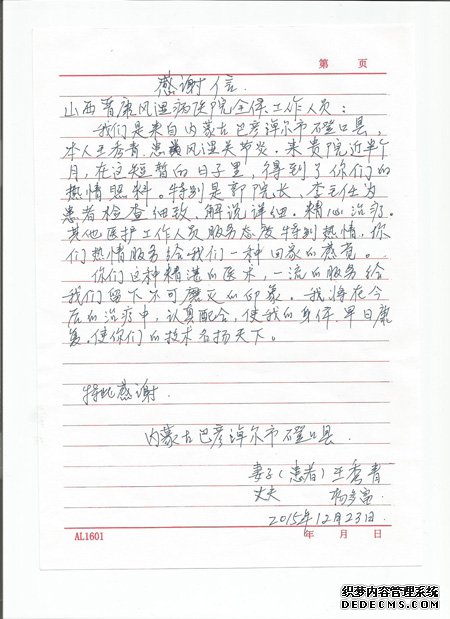 第 页
感谢信
山西晋康风湿病医院全体工作人员:
我们是来自内蒙古巴彦淖尔市磴口县,
本人王秀青,患风湿关节炎.来贵院近半个
月,在这短暂的日子里,得到了你们的
热情照料。特别是郭院长、李主任为
患者检查细致,解说详细.精心治疗。
其他医护工作人员服务态度特别热情,你
们热情服务给我们一种回家的感觉。
你们这种精湛的医术,一流的服务给
我们留下不可磨灭的印象。我将在今
后的治疗中,认真配合,使我的身体早日康
复.使你们的技术名扬天下。
特此感谢.
内蒙古巴彦淖尔市磴口县.
妻子(患者)王秀青
丈夫 杨富
2015年12月23日.
AL1601 年 月 日
织梦内容管理系统
DEDECMS.COM